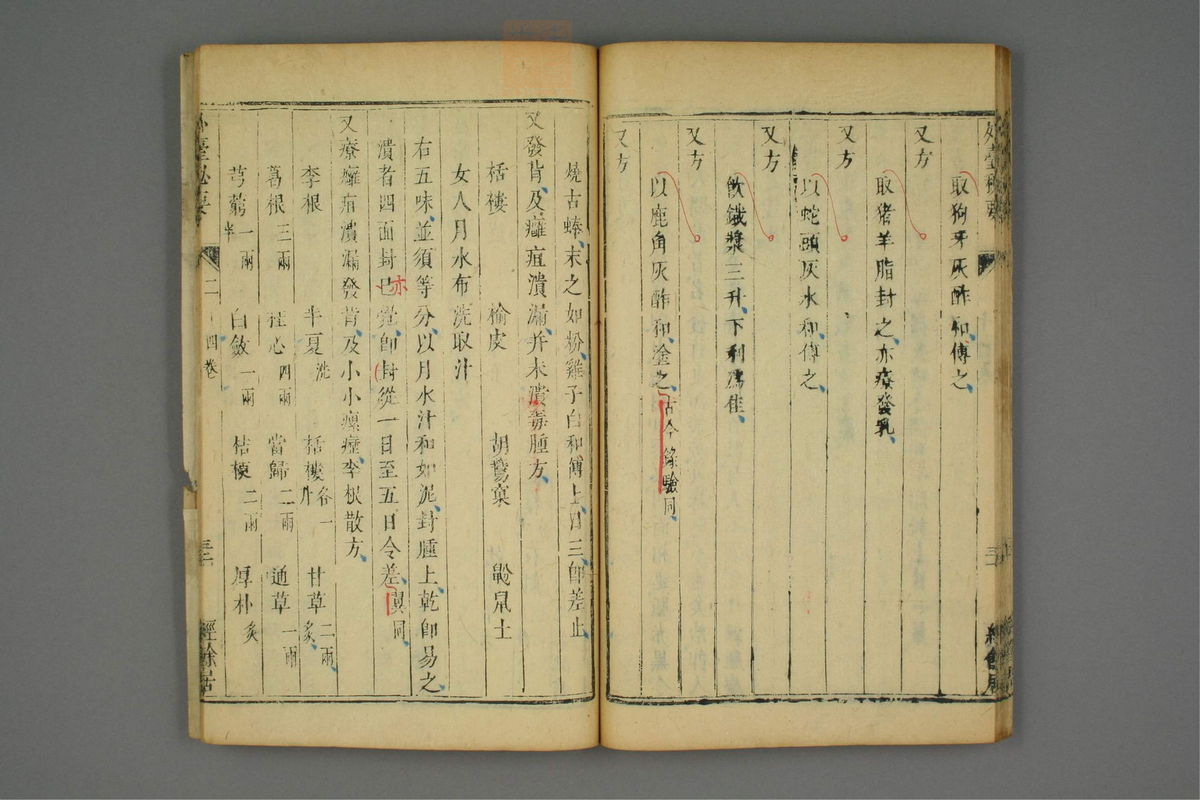 外臺秘要
取狗牙灰酢和傅之
又方
取猪羊脂封之亦療發乳
又方
以蛇頭灰水和傅之
又方
飲鐵漿三升下利爲佳
又方
以鹿角灰酢和塗之古今錄驗同
又方
燒古蜯末之如粉雞子白和傅上日三即差止
又發背及癰疽潰漏并未潰毒腫方
栝樓 榆皮 胡鷰窠 鼢鼠土
女人月水布洗取汁
右五味並須等分以月水汁和如泥封腫上乾即易之
潰者四面封已覺即封從一日至五日令差同
亦
又療癰疽潰漏發背及小小瘰癧李根散方
李根 半夏洗 栝樓各一 甘草二兩炙
葛根三兩 桂心四兩 當歸二兩 通草一兩
芎藭一兩半 白斂一兩 桔梗二兩 厚朴炙
外臺秘要 二四卷 三 經餘居